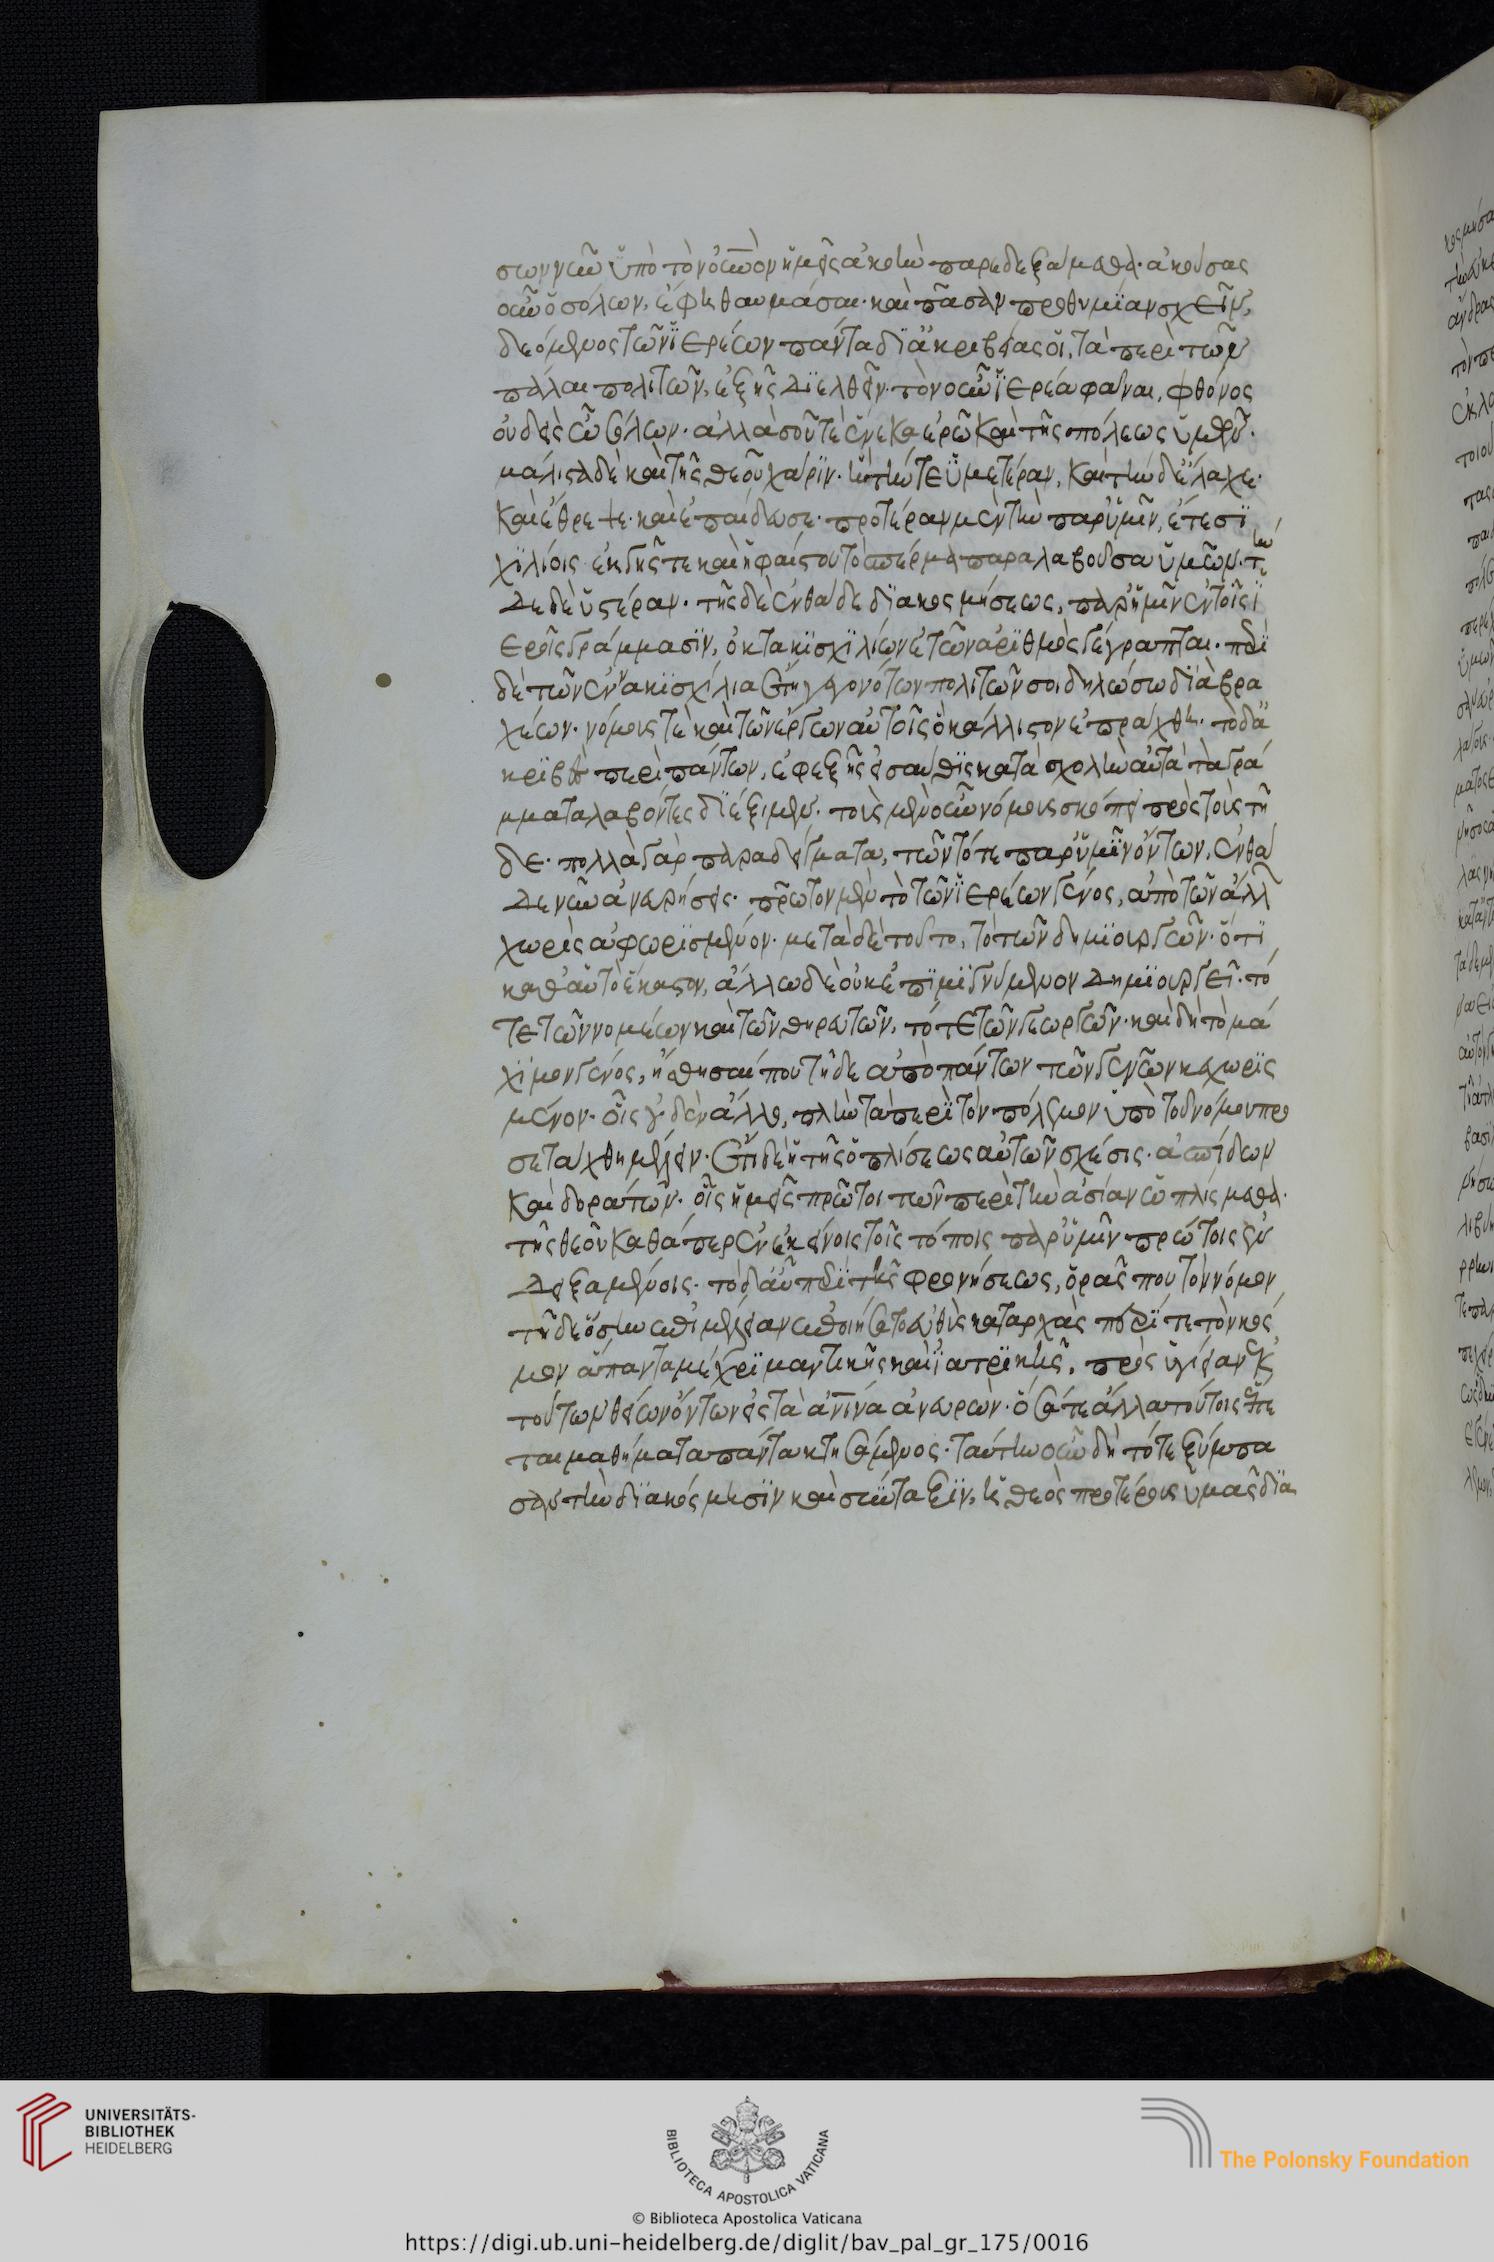 σων νῦν ὑπὸ τὸν οὐνὸν ἡμεῖς ἀκοὴν παρεδεξάμεθα· ἀκούσας
οὖν ὁ σόλων, ἔφη θαυμάσαι· καὶ πᾶσαν προθυμίαν σχεῖν,
δεόμενος τῶν ἱερέων πάντα δι' ἀκριβείας οἱ, τὰ περὶ τῶν
πάλαι πολιτῶν, ἑξῆς διελθεῖν· τὸν οὖν ἱερέα φάναι, φθόνος
οὐδεὶς ὦ σόλων· ἀλλὰ σοῦ τὲ ἕνεκα ἐρῶ καὶ τῆς πόλεως ὑμῶν·
μάλιστα δὲ καὶ τῆς θεοῦ χάριν· ἣ τήν τε ὑμετέραν, καὶ τήνδε ἔλαχε·
καὶ ἔθρεψε· καὶ ἐπαίδευσε· προτέραν μὲν τὴν παρ' ὑμῖν, ἔτεσι
χιλίοις ἐκ γῆς τε καὶ ἡφαίστου τὸ σπέρμα παραλαβοῦσα ὑμῶν· τήν
δε δὲ ὑστέραν· τῆς δὲ ἐνθάδε διακοσμήσεως, παρ' ἡμῖν ἐν τοῖς ἱ
εροῖς γράμμασιν, ὀκτακισχιλίων ἐτῶν ἀριθμὸς γέγραπται· περὶ
δὲ τῶν ἐννακισχίλια ἔτη γεγονότων πολιτῶν σοι δηλώσω διὰ βρα
χέων· νόμους τὲ καὶ τῶν ἔργων αὐτοῖς ὃ κάλλιστον ἐπράχθη· τὸ δ' ἀ
κριβὲς περὶ πάντων, ἐφεξῆς εἰσαῦθις κατὰ σχολὴν αὐτὰ τὰ γρά
μματα λαβόντες διέξιμεν· τοὺς μὲν οὖν νόμους σκόπει πρὸς τοὺς τῇ
δε· πολλὰ γὰρ παραδείγματα, τῶν τότε παρ' ὑμῖν ὄντων, ἐνθά
δε νῦν ἀνευρήσεις· πρῶτον μὲν τὸ τῶν ἱερέων γένος, ἀπὸ τῶν ἄλλων
χωρὶς ἀφωρισμένον· μετὰ δὲ τοῦτο, τὸ τῶν δημιουργῶν· ὅτι
καθ' αὑτὸ ἕκαστον, ἄλλω δὲ οὐκ ἐπιμιγνύμενον δημιουργεῖ· τό
τε τῶν νομέων καὶ τῶν θηρευτῶν, τό τε τῶν γεωργῶν· καὶ δὴ τὸ μά
χιμον γένος, ἤσθησαι που τῇδε ἀπὸ πάντων τῶν γενῶν κεχωρισ
μένον· οἷς οὐδὲν ἄλλο, πλὴν τὰ περὶ τὸν πόλεμον ὑπὸ τοῦ νόμου προ
σετάχθη μέλειν· ἔτι δὲ ἡ τῆς ὁπλίσεως αὐτῶν σχέσις· ἀσπίδων
καὶ δοράτων· οἷς ἡμεῖς πρῶτοι τῶν περὶ τὴν ἀσίαν ὡπλίσμεθα·
τῆς θεοῦ καθάπερ ἐν ἐκείνοις τοῖς τόποις παρ' ὑμῖν πρώτοις ἐν
δειξαμένοις· τὸ δ' αὖ περὶ τῆς φρονήσεως, ὁρᾷς που τὸν νόμον
τῇδε ὅσην ἐπιμέλειαν ἐποιήσατο εὐθὺς κατ' αρχὰς περί τε τὸν κόσ
μον ἅπαντα μέχρι μαντικῆς καὶ ἰατρικῆς, πρὸς ὑγίειαν ἐκ
τούτων θείων ὄντων εἰς τὰ ἀνινὰ ἀνευρών· ὅσα τε ἄλλα τούτοις ἕπε
ται μαθήματα πάντα κτησάμενος· ταύτην οὖν δὴ τότε ξύμπα
σαν τὴν διακόσμησιν καὶ σύνταξιν, ἡ θεὸς προτέρους ὑμᾶς δια
UNIVERSITÄTS-
BIBLIOTHEK
HEIDELBERG
BIBLIOTECA APOSTOLICA VATICANA
The Polonsky Foundation
© Biblioteca Apostolica Vaticana
https://digi.ub.uni-heidelberg.de/diglit/bav_pal_gr_175/0016